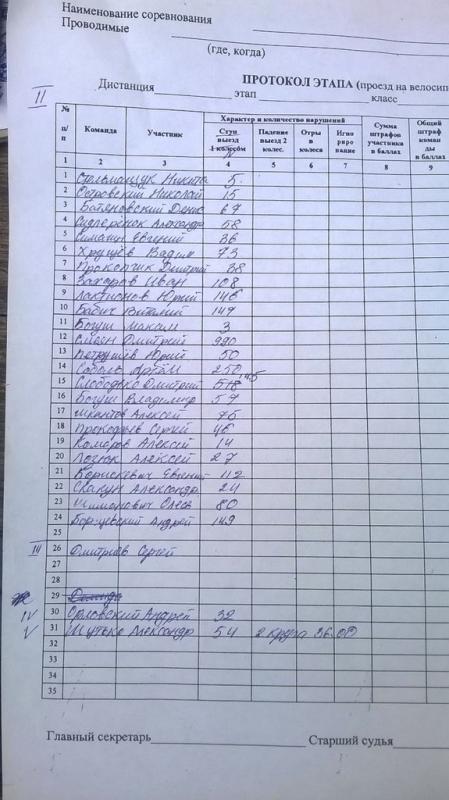 Наименование соревнования
Проводимые
(где, когда)
ПРОТОКОЛ ЭТАПА (проезд на велосип
Дистанция этап класс
II
№ п/п Команда Участник Характер и количество нарушений Сумма штрафов участника в баллах Общий штраф команды в баллах
Ступ выезд 1 колесом Падение выезд 2 колес. Отры в колеса Игно риро вание
N
1 2 3 4 5 6 7 8 9
1 Никита 5
2 Островский Николай 15
3 Батяновский Денис 67
4 Александр 58
5 Евгений 36
6 Хрущёв Вадим 73
7 Прокопчик Дмитрий 38
8 Захаров Иван 108
9 Лактионов Юрий 146
10 Бабич Виталий 149
11 Богуш Максим 3
12 Дмитрий 990
13 Петрушев Юрий 50
14 Соболь Артём 250
15 Слободько Дмитрий 518
16 Богуш Владимир 57
17 Алексей 75
18 Прокофьев Сергей 46
19 Комаров Алексей 14
20 Лозюк Алексей 27
21 Борискевич Евгений 112
22 Скакун Александр 24
23 Олеся 80
24 Андрей 149
25
III 26 Дмитриев Сергей
27
28
29
IV 30 Орловский Андрей 32
V 31 Шутько Александр 54 2 круга 36.00
32
33
34
35
Главный секретарь Старший судья